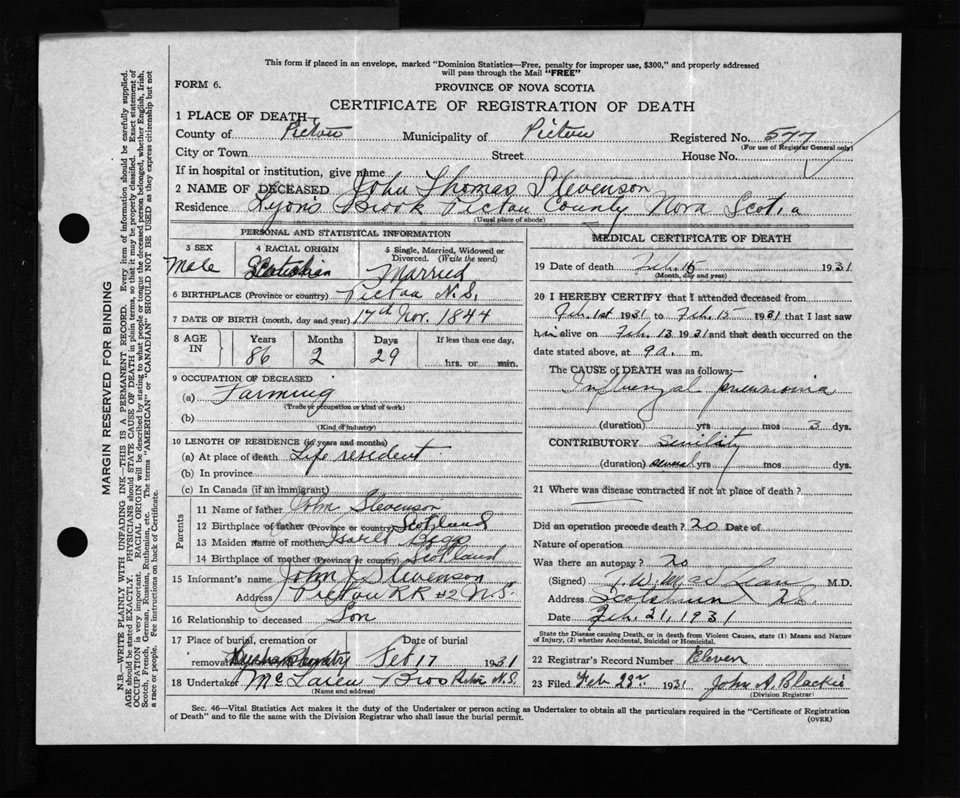 This form if placed in an envelope, marked "Dominion Statistics—Free, penalty for improper use, $300," and properly addressed
will pass through the Mail "FREE"
FORM 6.
PROVINCE OF NOVA SCOTIA
CERTIFICATE OF REGISTRATION OF DEATH
1 PLACE OF DEATH—
County of Pictou Municipality of Pictou Registered No. 577
(For use of Registrar General only)
City or Town Street House No.
If in hospital or institution, give name
2 NAME OF DECEASED John Thomas Stevenson
Residence Lyon's Brook Pictou County Nova Scotia
(Usual place of abode)
PERSONAL AND STATISTICAL INFORMATION
3 SEX 4 RACIAL ORIGIN 5 Single, Married, Widowed or
Divorced. (Write the word)
Male Married
6 BIRTHPLACE (Province or country) Pictou N.S.
7 DATE OF BIRTH (month, day and year) 17th Nov. 1844
8 AGE IN Years Months Days If less than one day,
86 2 29 hrs. or min.
9 OCCUPATION OF DECEASED
(a) Farming
(Trade or occupation or kind of work)
(b)
(Kind of industry)
10 LENGTH OF RESIDENCE (in years and months)
(a) At place of death Life resident
(b) In province
(c) In Canada (if an immigrant)
Parents
11 Name of father John Stevenson
12 Birthplace of father (Province or country) Scotland
13 Maiden name of mother
14 Birthplace of mother (Province or country) Scotland
15 Informant's name John J. Stevenson
Address Pictou RR #2 N.S.
16 Relationship to deceased Son
17 Place of burial, cremation or Date of burial
removal Feb 17 1931
18 Undertaker McLaren Bros Pictou N.S.
(Name and address)
MEDICAL CERTIFICATE OF DEATH
19 Date of death Feb. 15 1931
(Month, day and year)
20 I HEREBY CERTIFY that I attended deceased from
Feb. 1st 1931 to Feb. 15 1931 that I last saw
him alive on Feb. 13 1931 and that death occurred on the
date stated above, at 9 a. m.
The CAUSE of DEATH was as follows:—
Influenzal pneumonia
(duration) yrs mos 3 dys.
CONTRIBUTORY Senility
(duration) several yrs mos dys.
21 Where was disease contracted if not at place of death?
Did an operation precede death? no Date of
Nature of operation
Was there an autopsy? no
(Signed) MacLean M.D.
Address Scotsburn N.S.
Date Feb. 21, 1931
State the Disease causing Death, or in death from Violent Causes, state (1) Means and Nature
of Injury, (2) whether Accidental, Suicidal or Homicidal.
22 Registrar's Record Number Eleven
23 Filed Feb 23rd 1931 John A. Blackie
(Division Registrar)
Sec. 46—Vital Statistics Act makes it the duty of the Undertaker or person acting as Undertaker to obtain all the particulars required in the "Certificate of Registration
of Death" and to file the same with the Division Registrar who shall issue the burial permit.
(OVER)
MARGIN RESERVED FOR BINDING
N.B.—WRITE PLAINLY WITH UNFADING INK—THIS IS A PERMANENT RECORD. Every item of information should be carefully supplied.
AGE should be stated EXACTLY. PHYSICIANS should STATE CAUSE OF DEATH in plain terms, so that it may be properly classified. Exact statement of
OCCUPATION is very important. RACIAL ORIGIN will be described by stating to what people or tongue the deceased person belonged, whether English, Irish,
Scotch, French, German, Russian, Ruthenian, etc. The terms "AMERICAN" or "CANADIAN" SHOULD NOT BE USED as they express citizenship but not
a race or people. See instructions on back of Certificate.